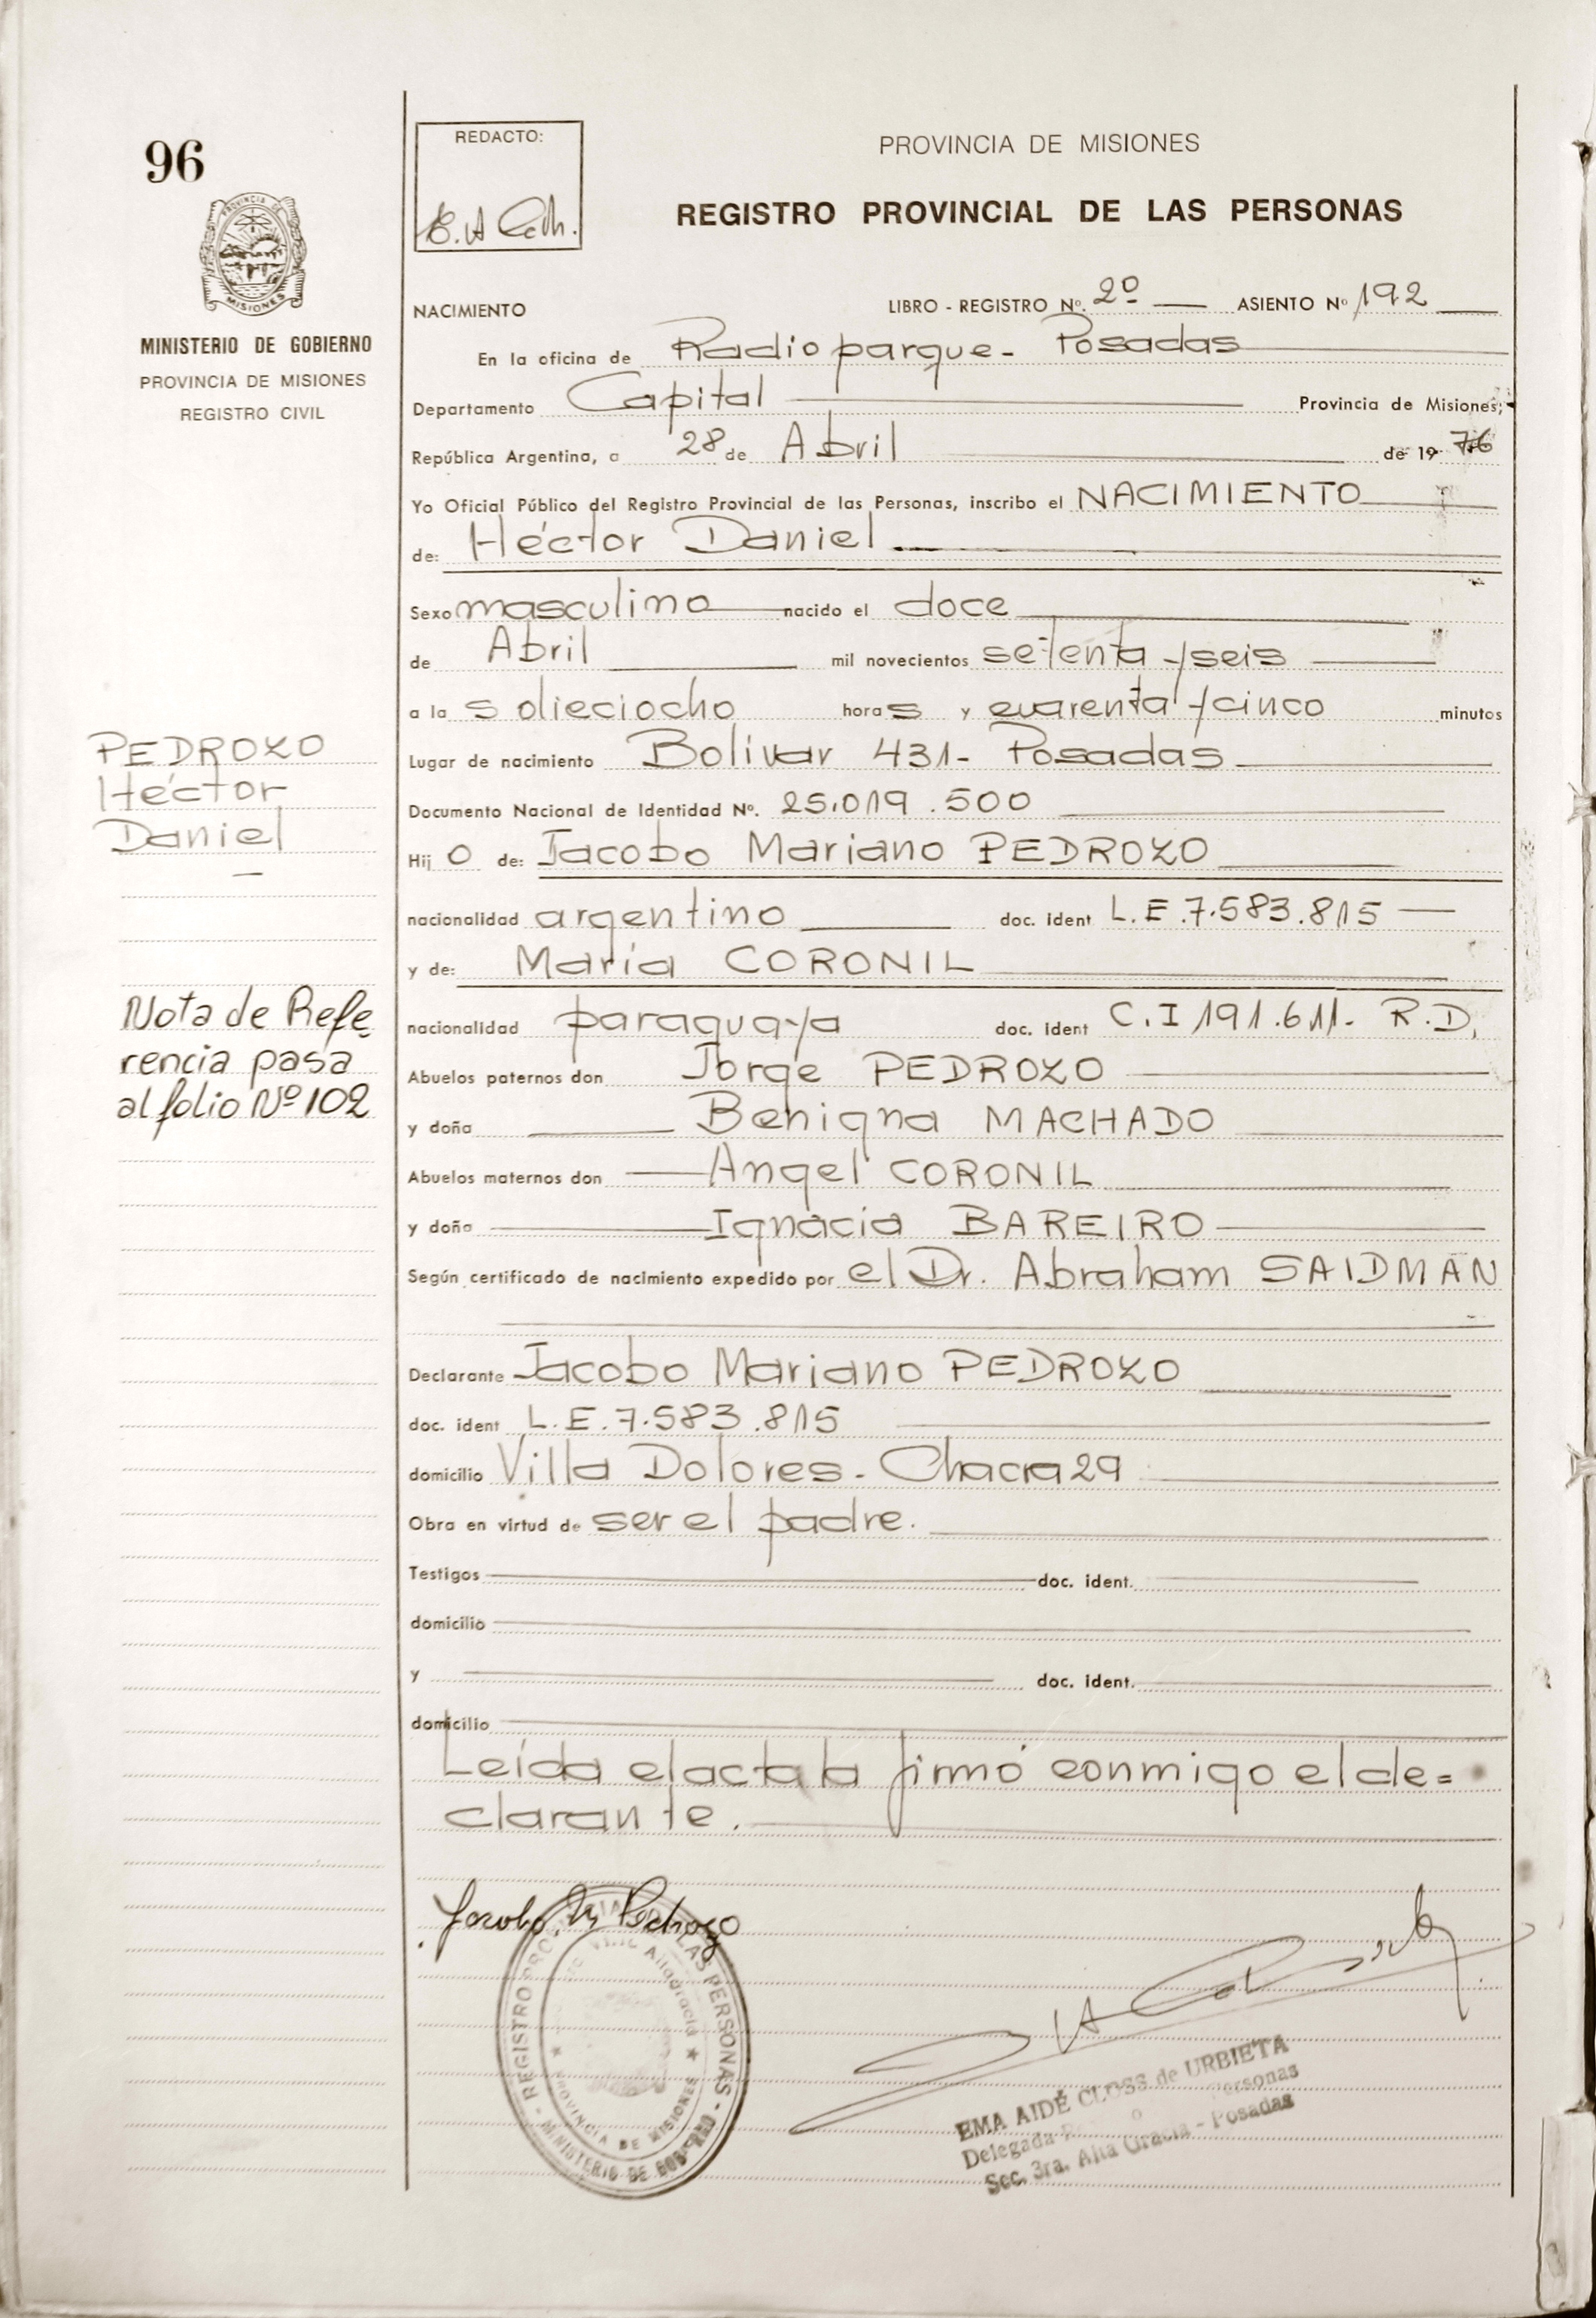 96
REDACTO:
PROVINCIA DE MISIONES
REGISTRO PROVINCIAL DE LAS PERSONAS
PROVINCIA DE
MISIONES
MINISTERIO DE GOBIERNO
PROVINCIA DE MISIONES
REGISTRO CIVIL
NACIMIENTO LIBRO - REGISTRO Nº. 2º ASIENTO Nº 192
En la oficina de Radioparque - Posadas
Departamento Capital Provincia de Misiones,
República Argentina, a 28 de Abril de 19 76
Yo Oficial Público del Registro Provincial de las Personas, inscribo el NACIMIENTO
de: Héctor Daniel
Sexo masculino nacido el doce
de Abril mil novecientos setenta y seis
a la s dieciocho hora s y cuarenta y cinco minutos
Lugar de nacimiento Bolívar 431 - Posadas
Documento Nacional de Identidad Nº. 25.019.500
Hij o de: Jacobo Mariano PEDROZO
nacionalidad argentino doc. ident L.E.7.583.815
y de: María CORONIL
nacionalidad paraguaya doc. ident C.I 191.611. R.D.
Abuelos paternos don Jorge PEDROZO
y doña Benigna MACHADO
Abuelos maternos don Angel CORONIL
y doña Ignacia BAREIRO
Según certificado de nacimiento expedido por el Dr. Abraham SAIDMAN
Declarante Jacobo Mariano PEDROZO
doc. ident L.E.7.583.815
domicilio Villa Dolores - Chacra 29
Obra en virtud de ser el padre.
Testigos doc. ident.
domicilio
y doc. ident.
domicilio
Leída el acta la firmó conmigo el de=
clarante.
PEDROZO
Héctor
Daniel
Nota de Refe
rencia pasa
al folio Nº 102
Jacobo M Pedrozo
REGISTRO PROVINCIAL DE LAS PERSONAS
MINISTERIO DE GOBIERNO
PROVINCIA DE MISIONES
EMA AIDÉ CLOSS de URBIETA
Delegada Personas
Sec. 3ra. Alta Gracia - Posadas